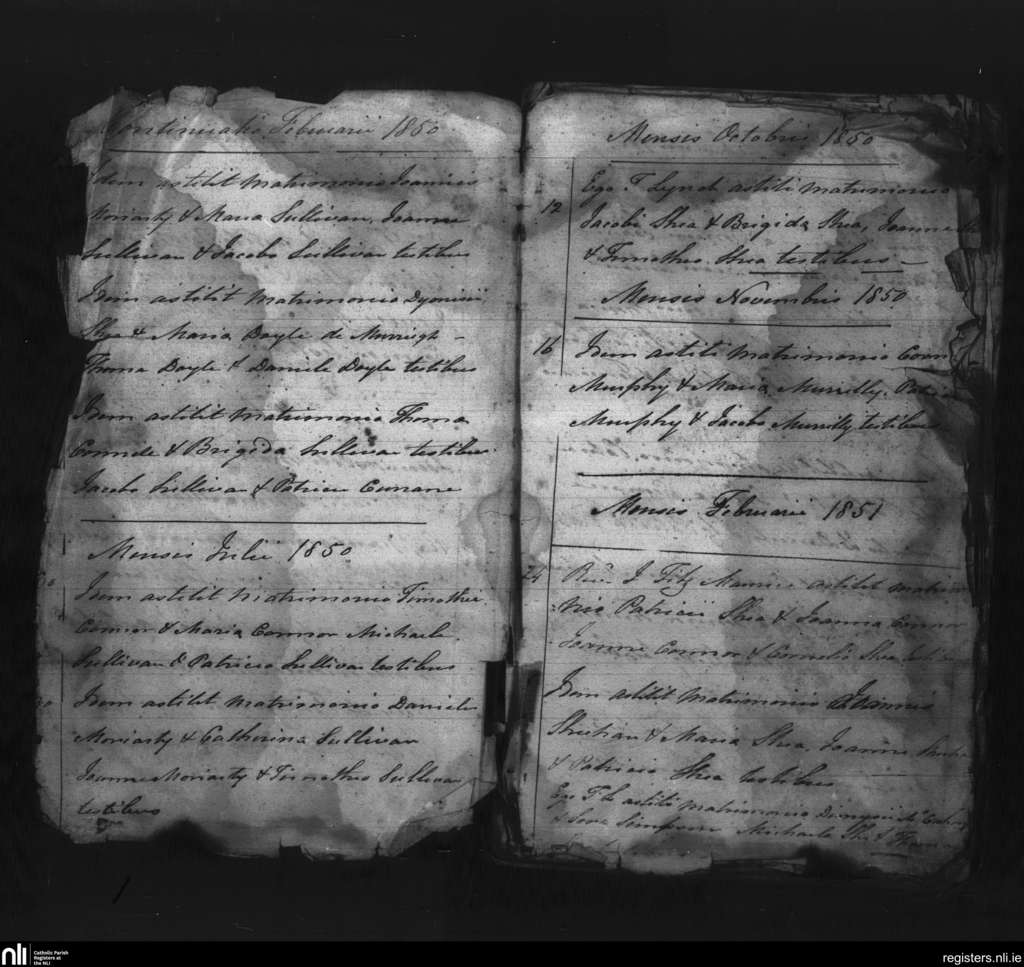 Continuatio Februarii 1850
Idem astitit matrimonio Joannis
Moriarty & Maria Sullivan, Joanne
Sullivan & Jacobo Sullivan testibus
Idem astitit matrimonio Dyonisii
Shea & Maria Doyle de Murreigh –
Thoma Doyle & Daniele Doyle testibus
Idem astitit matrimonio Thoma
& Brigida Sullivan testibus
Jacobo Sullivan & Patricio Currane
Mensis Julii 1850
Idem astitit matrimonio Timothei
Connor & Maria Connor Michaele
Sullivan & Patricio Sullivan testibus
Idem astitit matrimonio Danielis
Moriarty & Catherina Sullivan
Joanne Moriarty & Timotheo Sullivan
testibus
Mensis Octobris 1850
Ego T Lynch astiti matrimonio
12 Jacobi Shea & Brigida Shea, Joanne
& Timotheo Shea testibus –
Mensis Novembris 1850
16 Idem astiti matrimonio
Murphy & Maria
Murphy & Jacobo testibus
Mensis Februarii 1851
24 Revd J Fitz Maurice astitit matrimo
nio Patricii Shea & Joanna Connor
Joanne Connor & Cornelio Shea
Idem astitit matrimonio Joannis
Sheehan & Maria Shea, Joanne
& Patricio Shea testibus
Ego astiti matrimonio Dionysii
Simpson Michaele Shea &
nli
Catholic Parish
Registers at
the NLI
registers.nli.ie